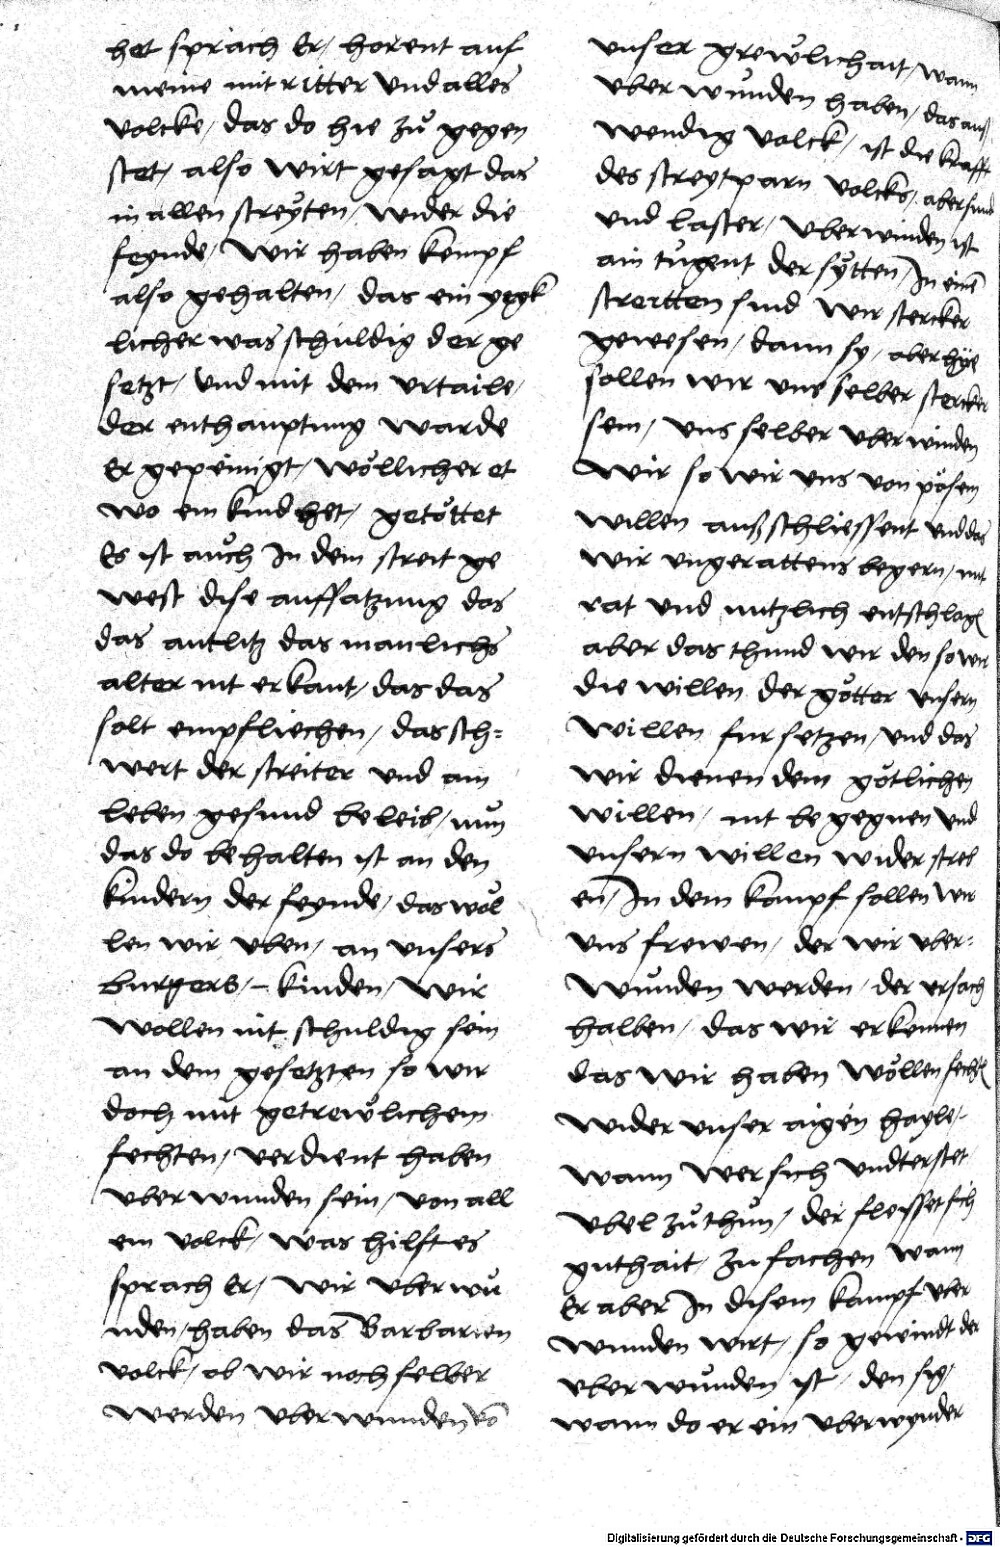 het sprach Er / horent auf
meine mit ritter vnd alles
volcke / das do hie zů gegen
stet / also wirt gesagt das
in allen streÿten / wider die
feÿnde / Wir haben kempf
also gehalten / das ein yegk
licher was schuldig der ge
setzt / vnd mit dem vrtaile /
der enthauptung warde
Er gepeinigt / wöllicher et
wo ein kind het / getöttet
Es ist auch In dem streit ge
west dise auffsatzung das
das antlitz das manlichs
alter nit erkant / das das
solt empfliechen / das sch=
wert der streiter vnd am
leben gesund beleib / nun
das do behalten ist an den
kindern der feynde / das wöl
len wir vben / an vnsers
burgers / kinden / Wir
wollen nit schuldig sein
an dem gesetzten so wir
doch mit getrewlichem
fechten / verdient haben
vberwunden sein / von all
em volck / Was hilft es
sprach Er / Wir vberwu
nden / haben das Barbarien
volck / ob wir noch selber
werden vberwunden vō
vnser grewlichait / wann
vberwunden haben / das auß
wendig volck / ist die krafft
des streytparn volcks / aber sund
vnd laster / vberwinden ist
ain tugent der sÿtten / In einē
streitten sind wir stercker
gewesen / dann sy / aber hÿe
sollen wir vns selber stercker
sein / vns selber vberwinden
Wir so wir vns von pösem
willen außschliessent vnd das
wir vngerattens begern / mit
rat vnd nutzlich entschlagē
aber das thund wir den so wir
die willen der götter vnserm
willen fur setzen / vnd das
wir dienen dem götlichen
willen / nit begegnen vnd
vnsern willen widerstreb
en / In dem kampf sollen wir
vns frewen / der wir vber=
wunden werden / der vrsach
halben / das wir erkennen
das wir haben wöllen fechtē
wider vnser aigen hayle /
wann wer sich vndterstet
vbel zů thun / der fleysset sich
guthait / zu fachen wann
Er aber In disem kampf vber
wunden wirt / so gewindt der
vberwunden ist / den sig /
wann do er ein vberwynder
Digitalisierung gefördert durch die Deutsche Forschungsgemeinschaft - DFG